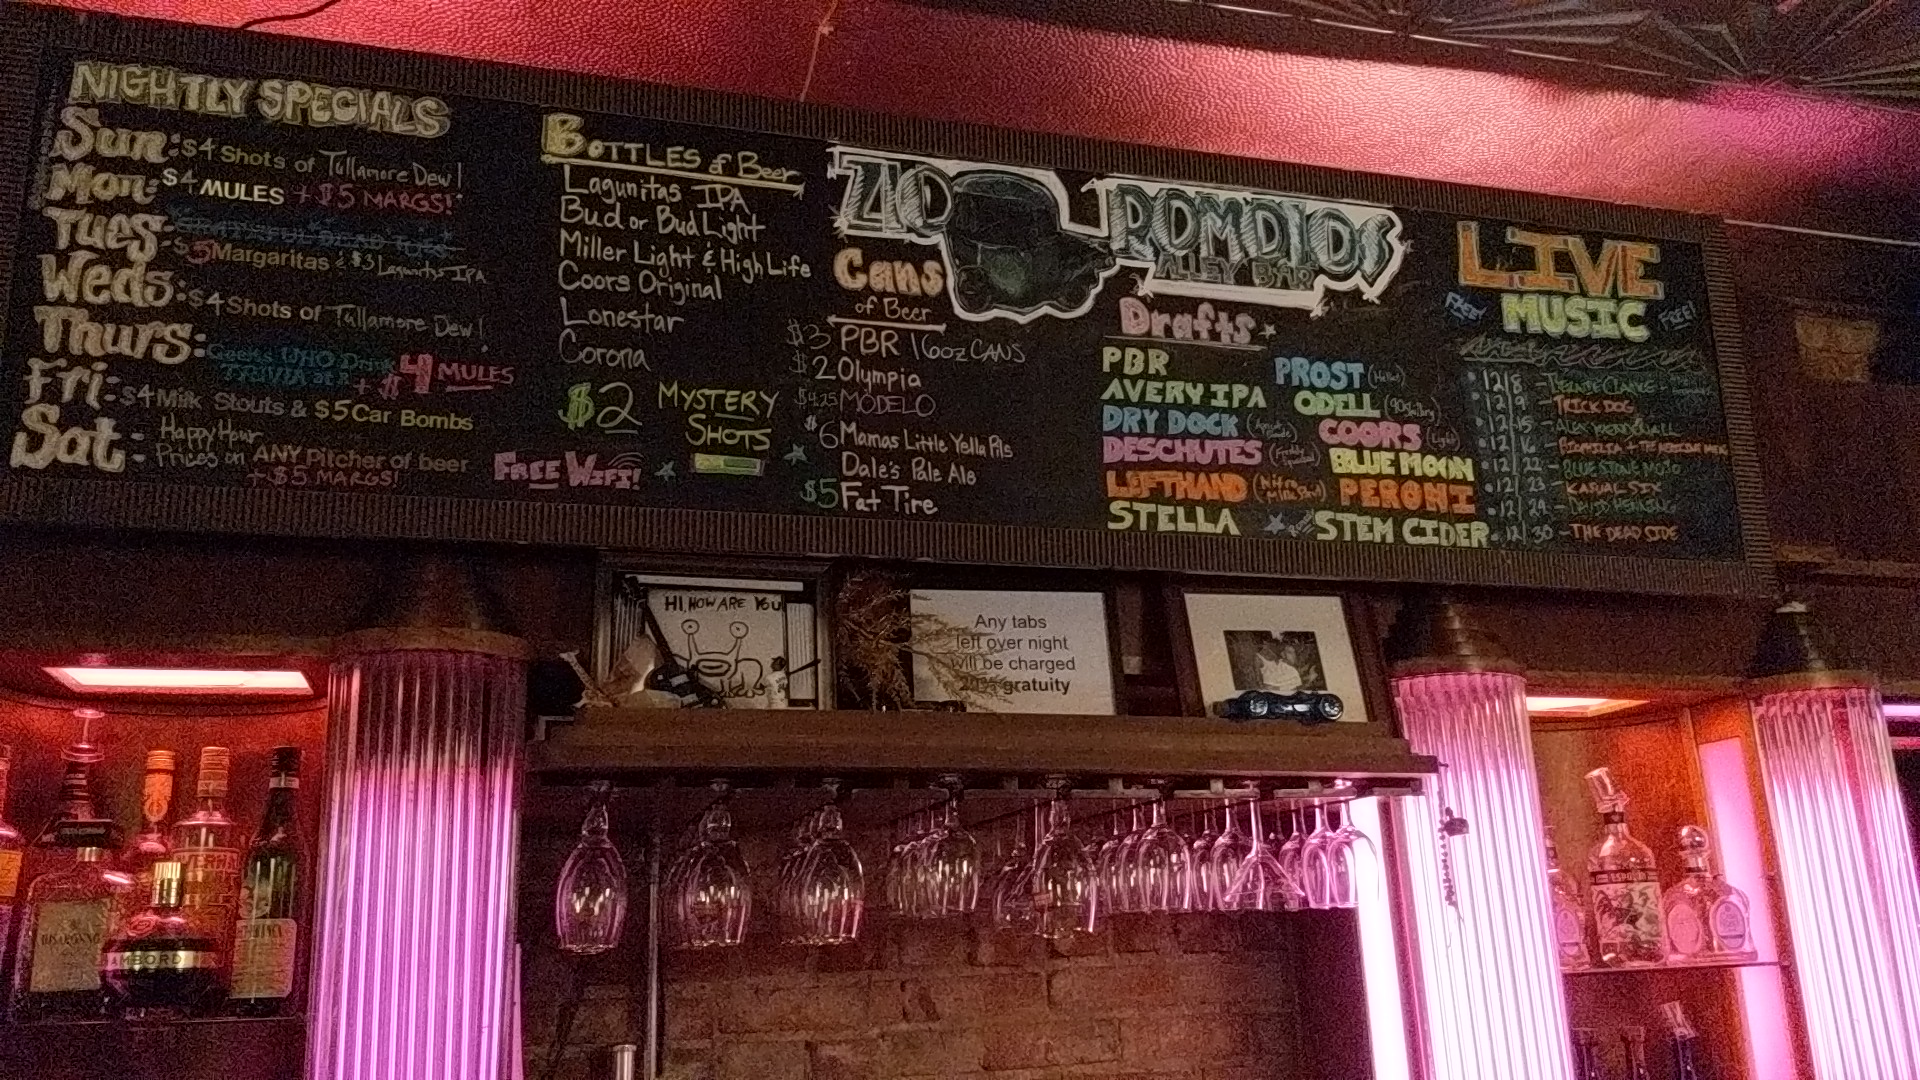 NIGHTLY SPECIALS
Sun: $4 Shots of Tullamore Dew!
Mon: $4 MULES + $5 MARGS!
Tues: GRATEFUL DEAD TUES
$5 Margaritas & $3 Lagunitas IPA
Weds: $4 Shots of Tullamore Dew!
Thurs: Geeks WHO Drink
TRIVIA at 8 + $4 MULES
Fri: $4 Milk Stouts & $5 Car Bombs
Sat: Happy Hour
Prices on ANY Pitcher of beer
+ $5 MARGS!
BOTTLES of Beer
Lagunitas IPA
Bud or Bud Light
Miller Light & High Life
Coors Original
Lonestar
Corona
$2 MYSTERY
SHOTS
FREE WIFI!
ZIO ROMOLOS
ALLEY BAR
Cans
of Beer
$3 PBR 16oz CANS
$2 Olympia
$4.25 MODELO
$6 Mamas Little Yella Pils
Dale's Pale Ale
$5 Fat Tire
Drafts
PBR
AVERY IPA
DRY DOCK
DESCHUTES
LEFTHAND (Nitro Milk Stout)
STELLA
PROST
ODELL (90 shilling)
COORS (Light)
BLUE MOON
PERONI
STEM CIDER
LIVE
FREE! MUSIC FREE!
12/8
12/9 - TRICK DOG
12/15
12/16
12/22 - BLUE STONE MOJO
12/23 - KASUAL SIX
12/29
12/30 - THE DEAD SIDE
HI, HOW ARE YOU
Any tabs
left over night
will be charged
gratuity
DISARONNO
AMBORD
ESPOLON